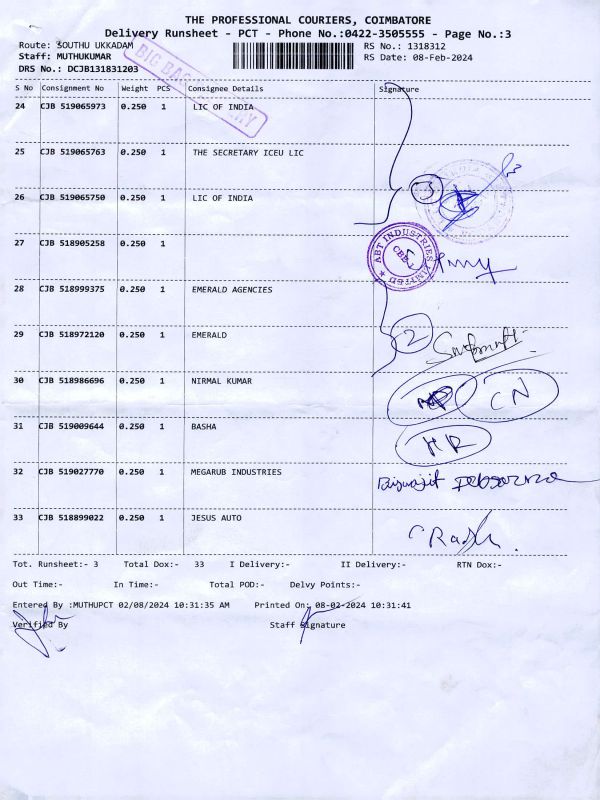 THE PROFESSIONAL COURIERS, COIMBATORE
Delivery Runsheet - PCT - Phone No.:0422-3505555 - Page No.:3
Route: SOUTHU UKKADAM RS No.: 1318312
Staff: MUTHUKUMAR RS Date: 08-Feb-2024
DRS No.: DCJB131831203
BIG BA
S No Consignment No Weight PCS Consignee Details Signature
24 CJB 519065973 0.250 1 LIC OF INDIA
25 CJB 519065763 0.250 1 THE SECRETARY ICEU LIC
26 CJB 519065750 0.250 1 LIC OF INDIA
3
27 CJB 518905258 0.250 1
ABT INDUSTRIES LIMITED
28 CJB 518999375 1 EMERALD AGENCIES
0.250
29 CJB 518972120 0.250 1 EMERALD
2
30 CJB 518986696 0.250 1 NIRMAL KUMAR
CN
31 CJB 519009644 0.250 1 BASHA
HR
32 CJB 519027770 0.250 1 MEGARUB INDUSTRIES
33 CJB 518899022 0.250 1 JESUS AUTO
Tot. Runsheet:- 3 Total Dox:- 33 I Delivery:- II Delivery:- RTN Dox:-
Out Time:- In Time:- Total POD:- Delvy Points:-
Entered By :MUTHUPCT 02/08/2024 10:31:35 AM Printed On: 08-02-2024 10:31:41
Verified By Staff Signature